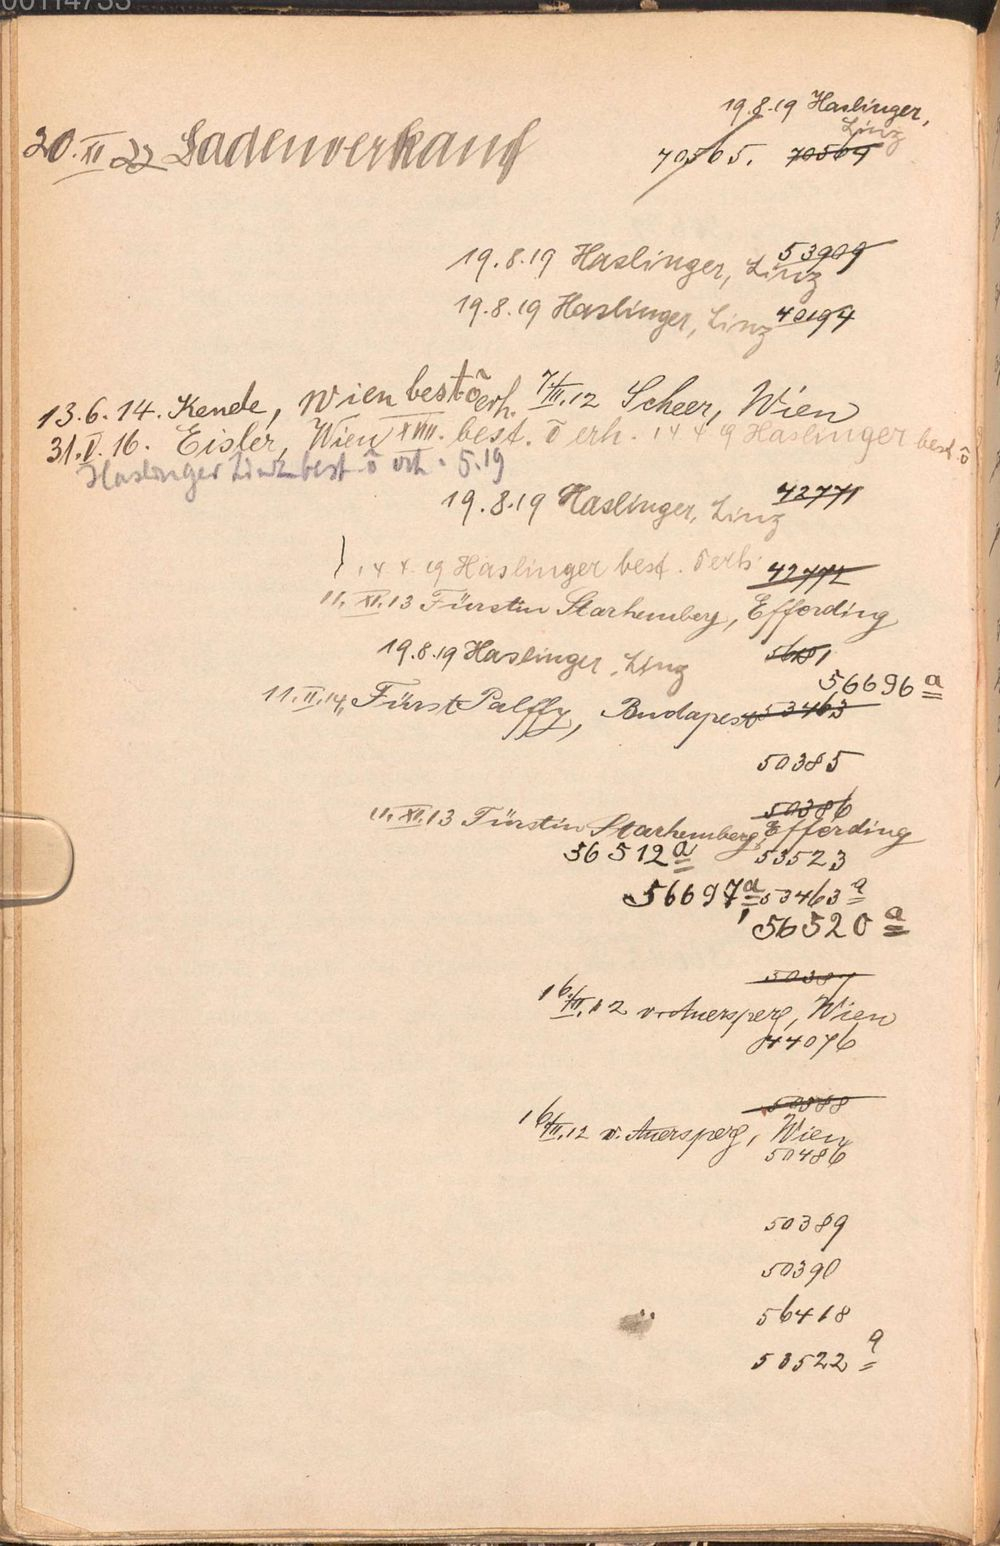 00114733
19.8.19 Haslinger,
Linz
20. XII 22 Ladenverkauf
70565. 70569
53909
19.8.19 Haslinger, Linz
19.8.19 Haslinger, Linz 40194
13.6.14. Kende, Wien best ō erh. 7/III.12 Scheer, Wien
31.V.16. Eisler, Wien XVIII. best. ō erh. 14 4 19 Haslinger best. ō
Haslinger Linz best ō erh. 5.19
42771
19.8.19 Haslinger, Linz
14 4. 19 Haslinger best. ō erh. 42772
11. XI.13 Fürstin Starhemberg, Effording
19.8.19 Haslinger, Linz
56696 a
11.II.14, Fürst Palffy, Budapest 53463
50385
50386
11. XI.13 Fürstin Starhemberg, Effording
56512 a 53523
56697 a 53463 a
56520 a
50387
16/III.12 v. Auersperg, Wien
44076
50388
16/III.12 v. Auersperg, Wien
50486
50389
50390
56418
53522 a